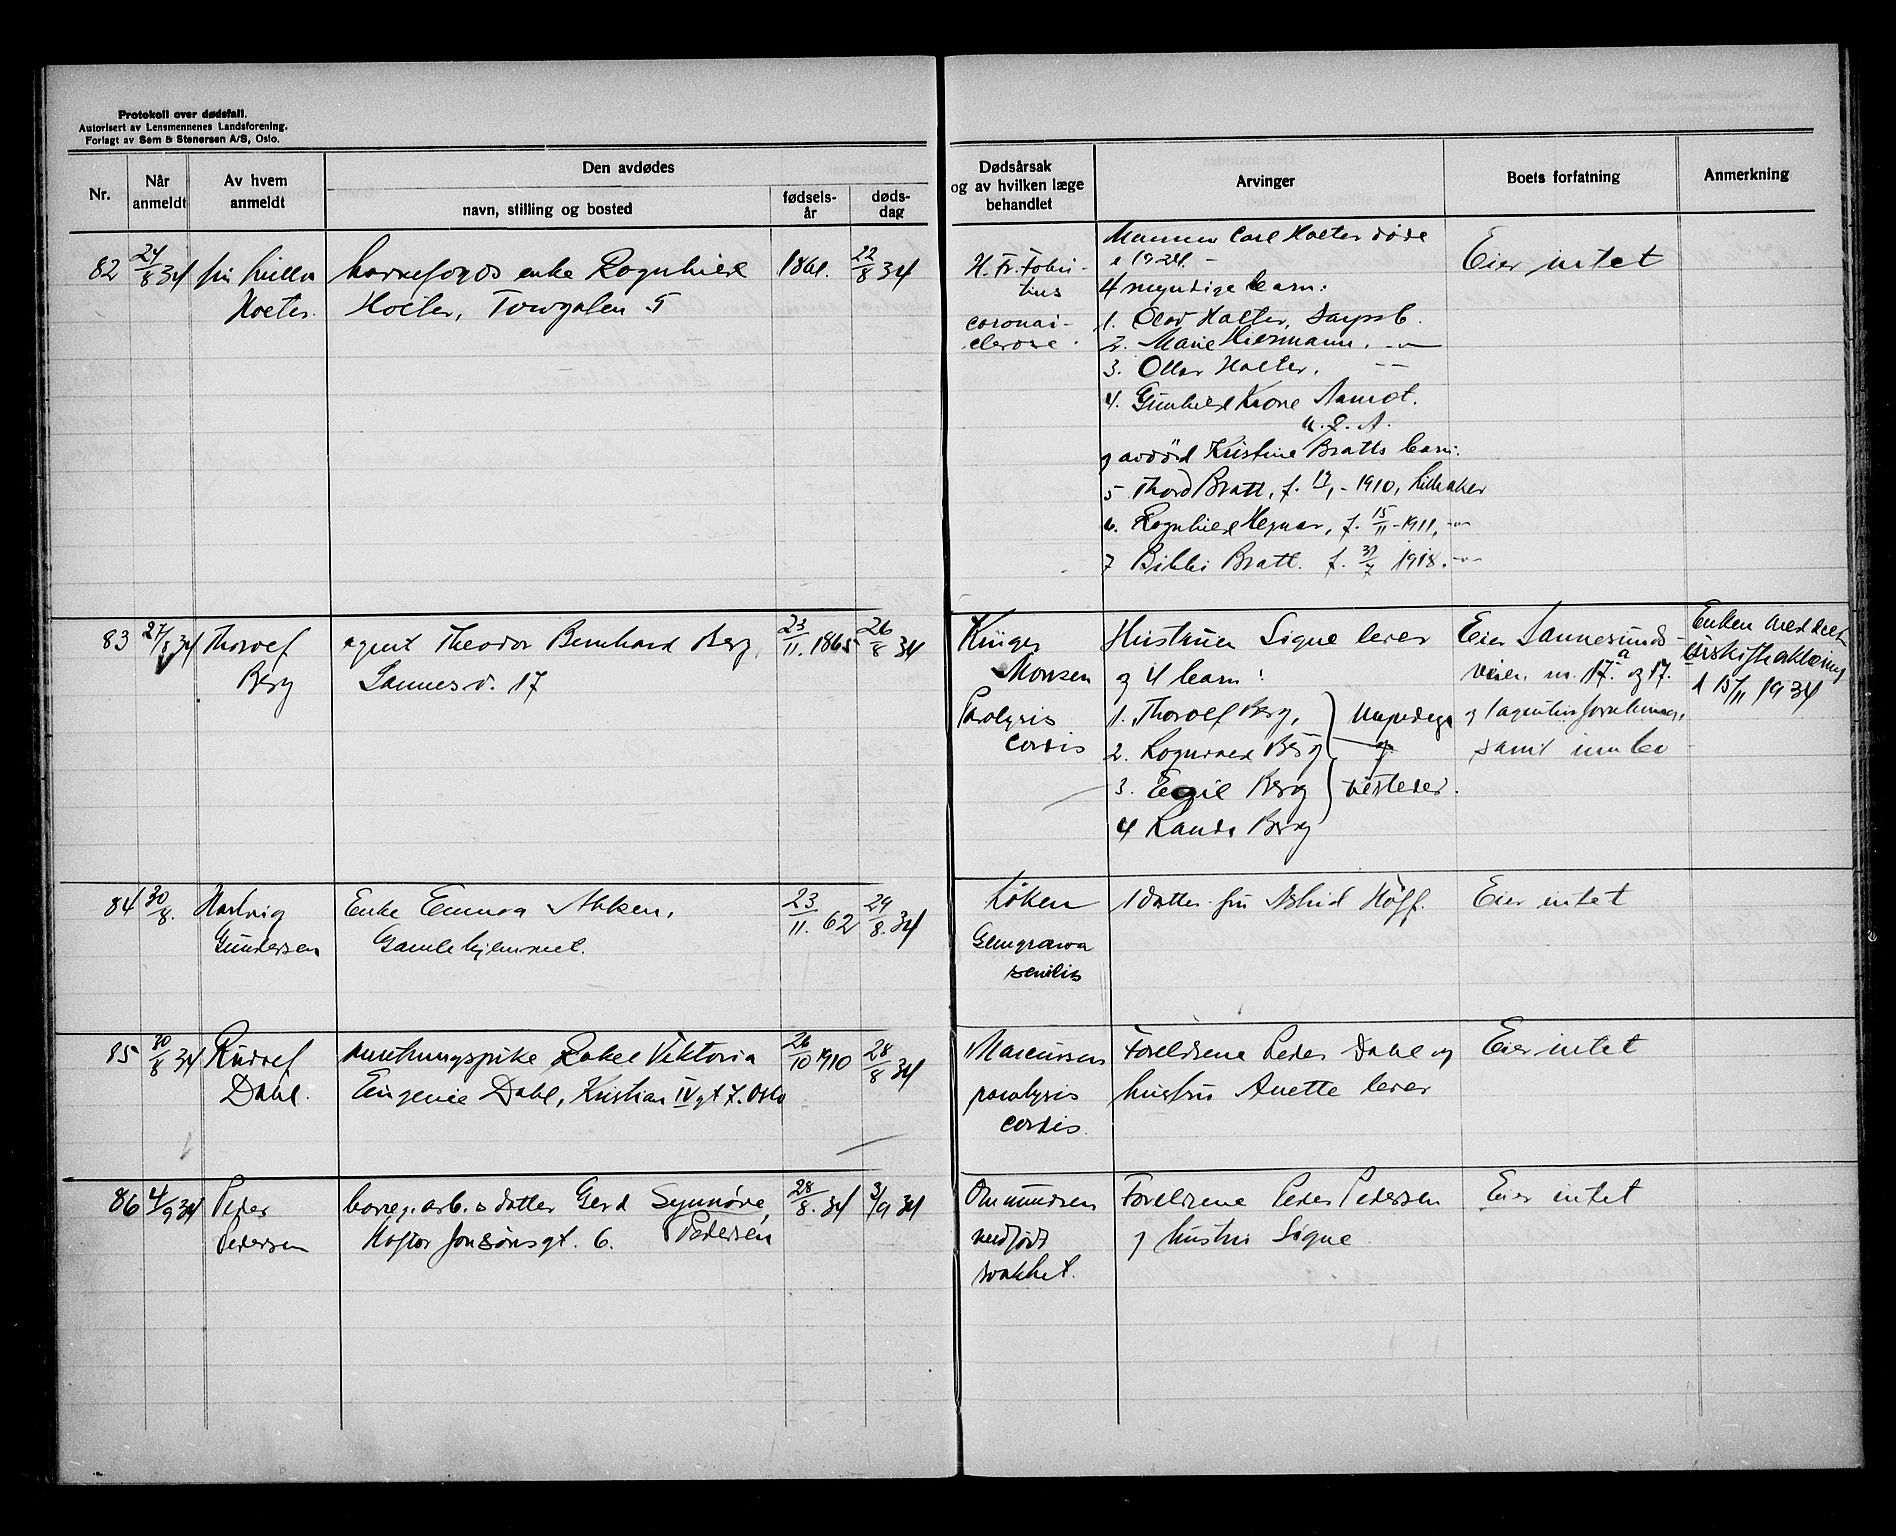 Protokoll over dødsfall.
Autorisert av Lensmennenes Landsforening.
Forlagt av Sem & Stenersen A/S, Oslo.
Nr.
Når anmeldt
Av hvem anmeldt
Den avdødes
navn, stilling og bosted
fødsels-år
døds-dag
Dødsårsak og av hvilken læge behandlet
Arvinger
Boets forfatning
Anmerkning
82 24/8 34 fru
enke Ragnhild 1861. 22/8 34
Holter, 5
H. Fr.
Mannen Carl Holter døde
i 1924. -
4 myndige barn:
1. Olav Holter, Sarpsb.
2. Marie
3. Holter,
4. Gunhild Krone
U.S.A.
g avdød Kristine Bratts barn:
5 Thord Bratt, 1910,
6. Ragnhild Hegnar, f. 15/11 - 1911,
7 Bibbi Bratt. f. 31/7 1918.
Eier intet
83 27/8 34 Thorolf
Berg
agent Theodor Bernhard Berg,
Sannes v. 17
23/11. 1865 26/8 34
Monsen
Paralysis
cordis
Hustruen Signe lever
og 4 barn:
1. Thorolf Berg,
2. Berg
3. Egil Berg
4 Randi Berg
Eier Sannesunds-
veien nr. 17a og 17.
samt innbo
Enken meddelt
uskifteatklering
d 15/11 1934
84 30/8. Hartvig
Gundersen
Enke Emma
Gamlehjemmet.
23/11. 62 29/8. 34
Løken
senilis
1 datter fru Astrid Høff.
Eier intet
85 30/8 34 Rudolf
Dahl.
Rakel Viktoria
Eugenie Dahl, Kristian IV gt 7. Oslo
26/10 1910 28/8 34
Marcussen
paralysis
cordis.
Foreldrene Peder Dahl og
hustru Anette lever
Eier intet
86 4/9 34 Peder
Pedersen
arb.s datter Gerd Synnøve,
Pedersen
Haftor Jonssønsgt. 6.
28/8. 34 3/9 34
Ommundsen
medfødt
svakhet.
Foreldrene Peder Pedersen
g hustru Signe
Eier intet